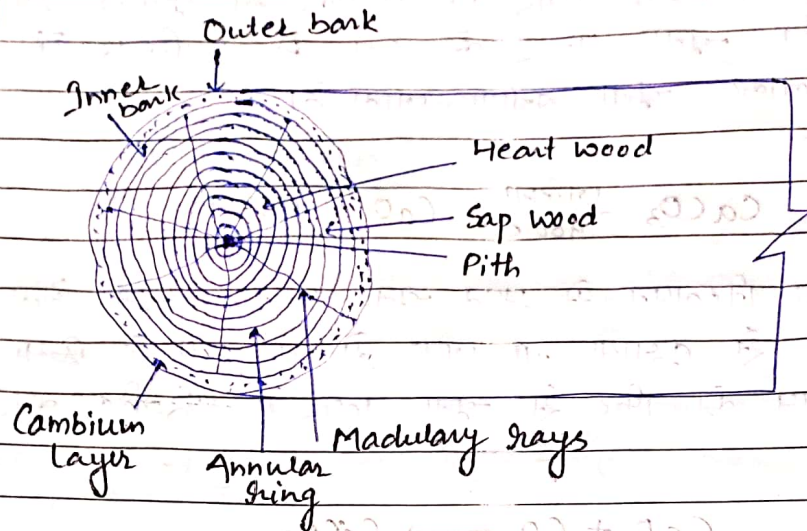 Outer bark
Inner
bark
Heart wood
Sap wood
Pith
CaCO3
Cambium
Layer
Annular
ring
Madulary rays